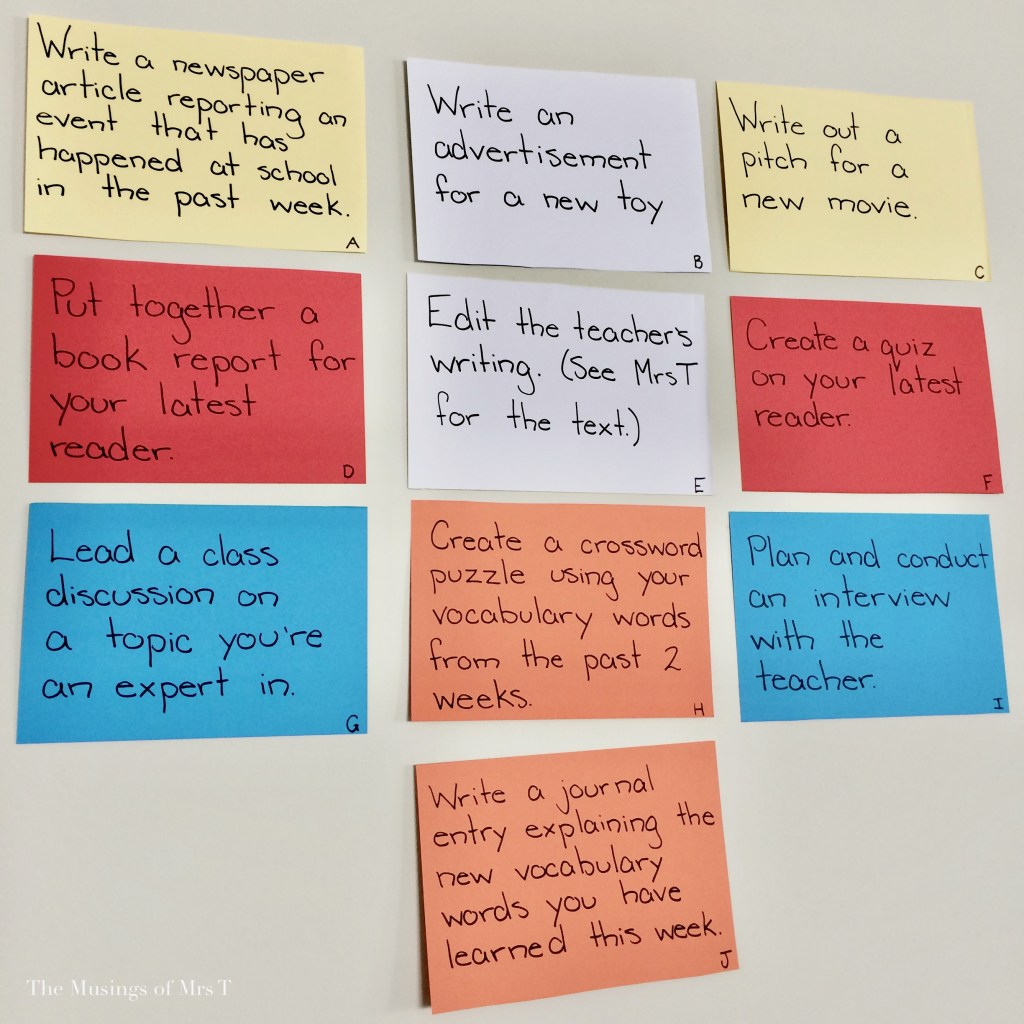 Write a newspaper
article reporting an
event that has
happened at school
in the past week.
A
Write an
advertisement
for a new toy
B
Write out a
pitch for a
new movie.
C
Put together a
book report for
your latest
reader.
D
Edit the teacher's
writing. (See MrsT
for the text.)
E
Create a quiz
on your latest
reader.
F
Lead a class
discussion on
a topic you're
an expert in.
G
Create a crossword
puzzle using your
vocabulary words
from the past 2
weeks.
H
Plan and conduct
an interview
with the
teacher.
I
Write a journal
entry explaining the
new vocabulary
words you have
learned this week.
J
The Musings of Mrs T